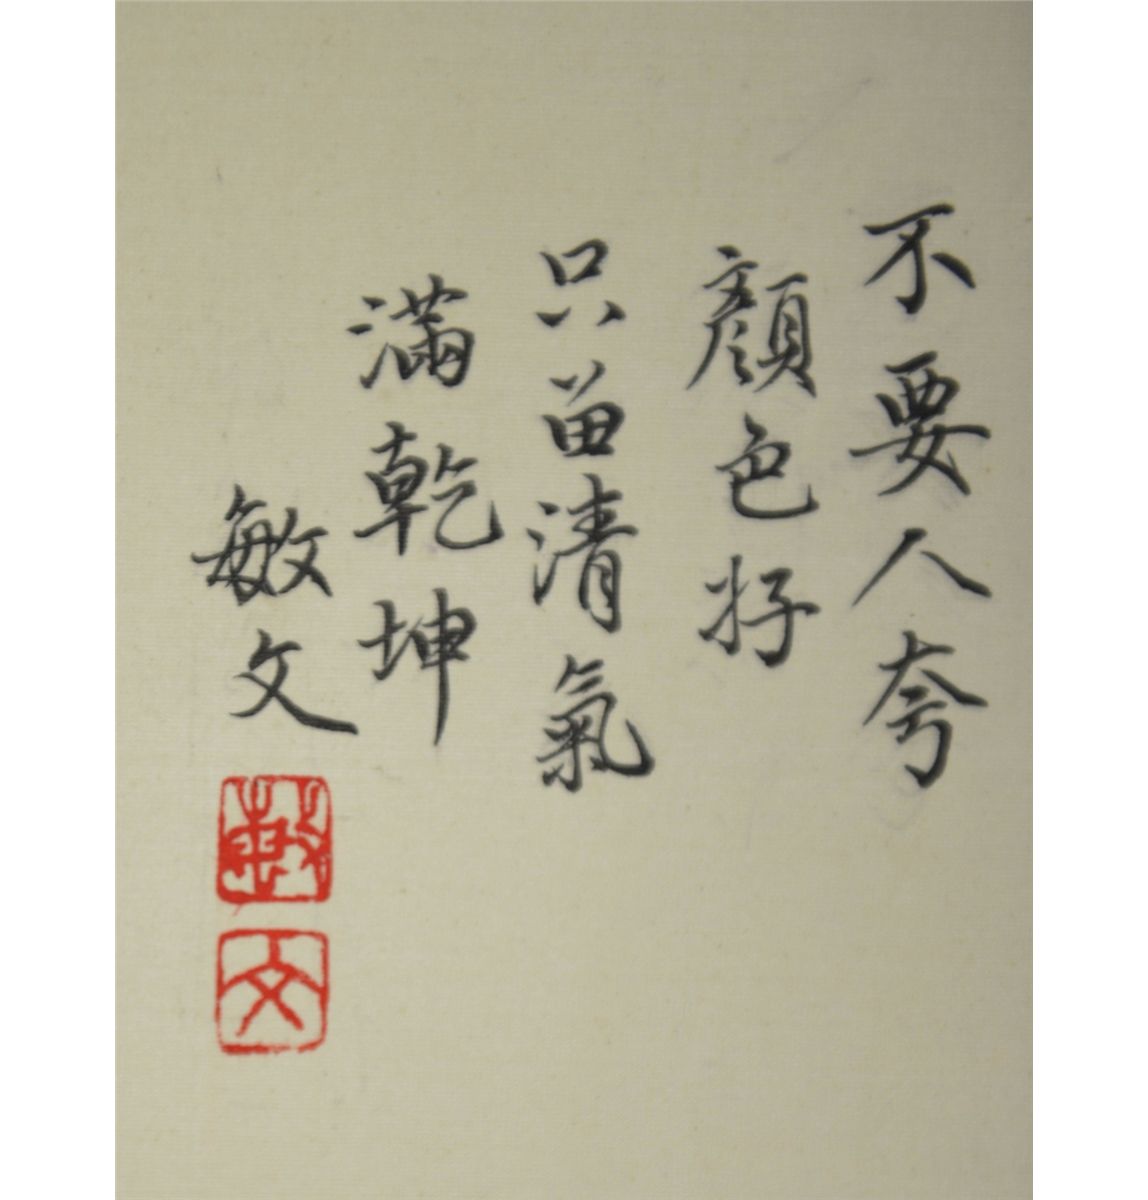 不要人夸
顔色好
只留清氣
滿乾坤
敏文
敏
文